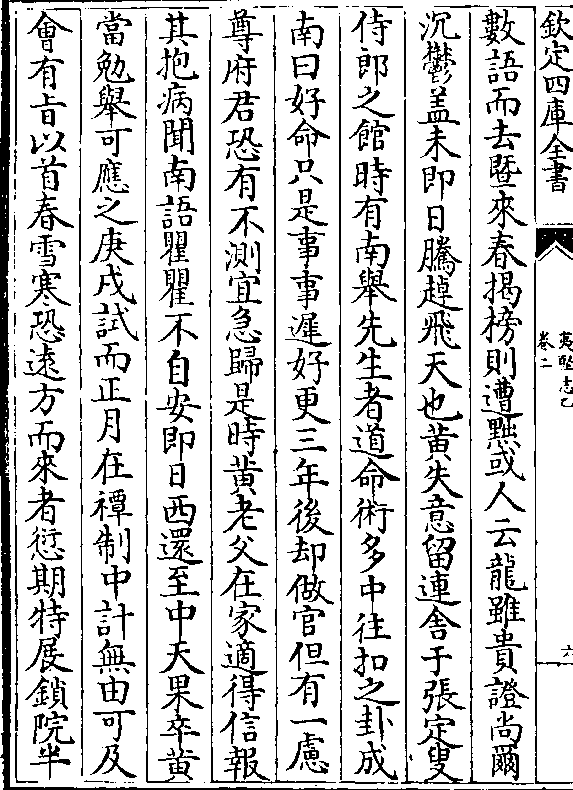 欽定四庫全書
夷堅志乙
卷二
六
數語而去暨來春揭榜則遭黜或人云龍雖貴證尚爾
沉鬱盖未即日騰趠飛天也黃失意留連舍于張定叟
侍郎之館時有南舉先生者道命術多中往扣之卦成
南曰好命只是事事遲好更三年後却做官但有一慮
尊府君恐有不測宜急歸是時黃老父在家適得信報
其抱病聞南語瞿瞿不自安即日西還至中天果卒黃
當勉舉可應之庚戌試而正月在禫制中計無由可及
會有㫖以首春雪寒恐逺方而來者愆期特展鎖院半